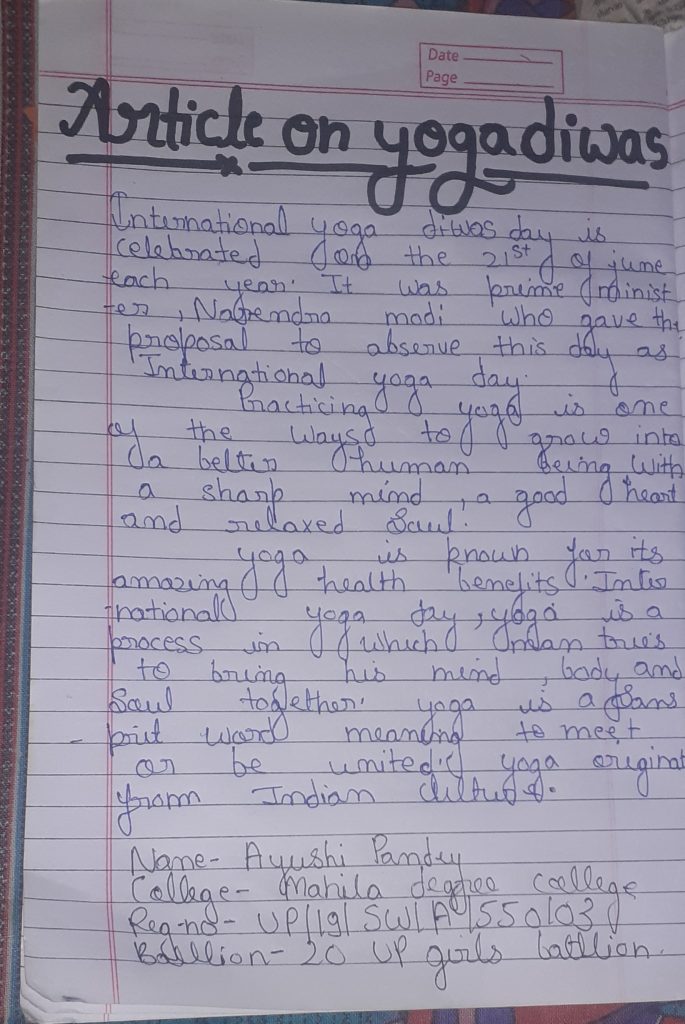 Date
Page
Article on yoga diwas
International yoga diwas day is
celebrated on the 21st of june
each year. It was prime minist
ter, Narendra modi who gave the
proposal to observe this day as
International yoga day.
Practicing yoga is one
of the ways to grow into
a better human being with
a sharp mind, a good heart
and relaxed Saul.
yoga is known for its
amazing health benefits. Inter
national yoga day, yoga is a
process in which man tries
to bring his mind, body and
Saul together. yoga is a sans
- prit word meaning to meet
or be united. yoga originat
from Indian
Name- Ayushi Pandey
College- Mahila degree college
Reg-no- UP/19/SW/A/550103
20 UP girls